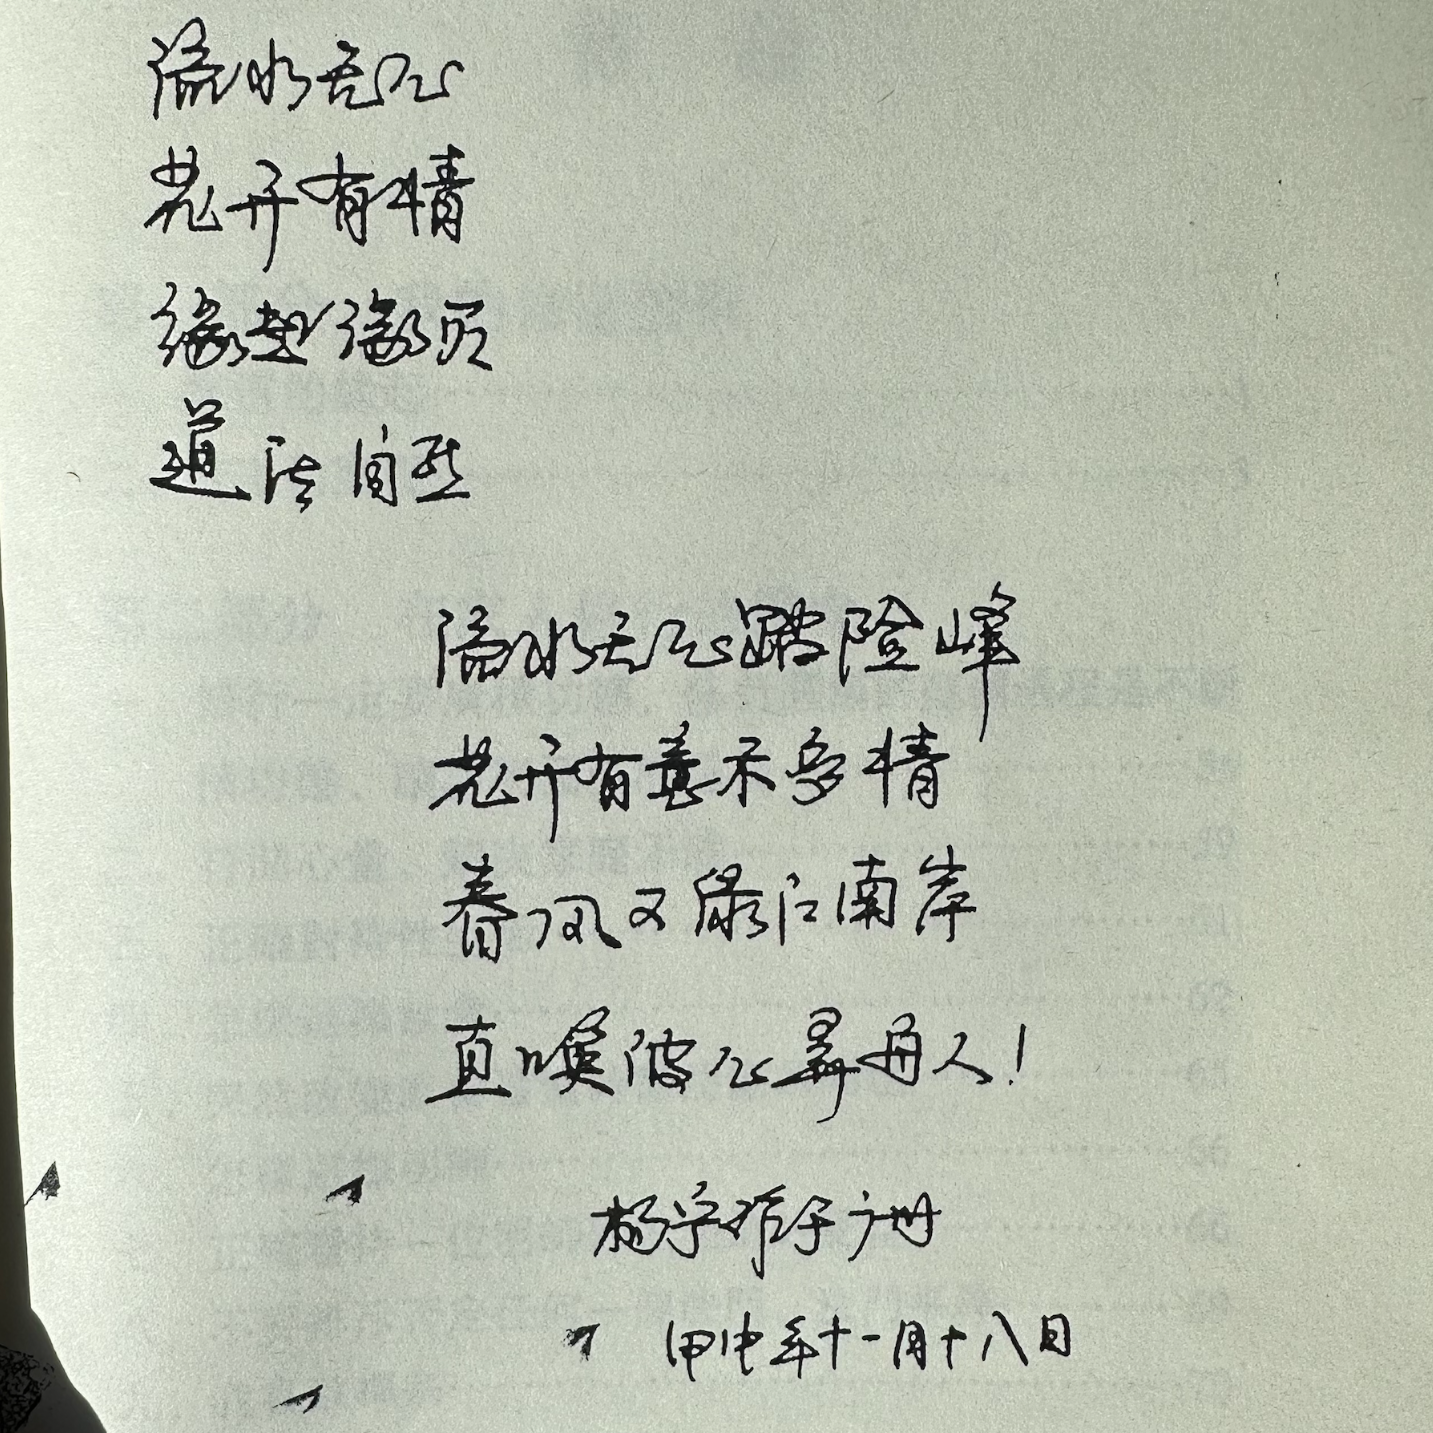 流水无心
花开有情
缘起缘灭
道法自然
流水无心踏险峰
花开有意不多情
春风又绿江南岸
直唤彼心舞再人！
杨宁作于广州
甲申年十一月十八日